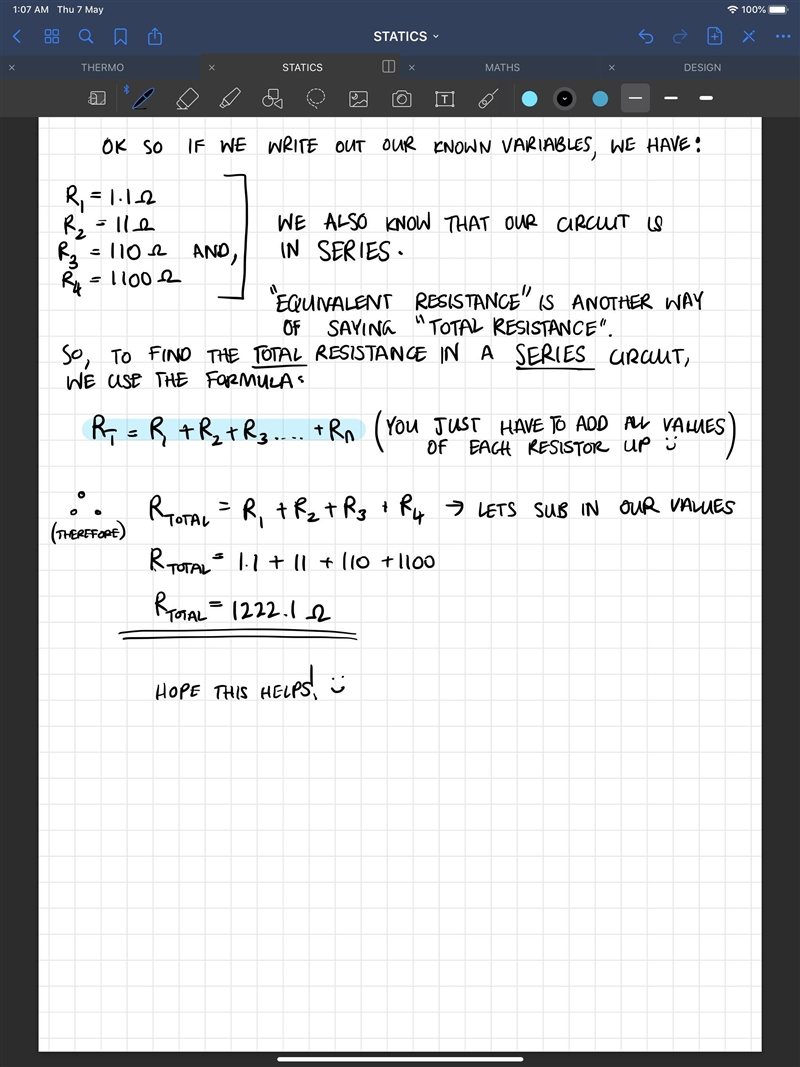 1:07 AM Thu 7 May
100%
STATICS
THERMO
STATICS
MATHS
DESIGN
T
OK SO IF WE WRITE OUT OUR KNOWN VARIABLES, WE HAVE:
R1 = 1.1 Ω
R2 = 11 Ω
R3 = 110 Ω AND,
R4 = 1100 Ω
WE ALSO KNOW THAT OUR CIRCUIT IS
IN SERIES.
"EQUIVALENT RESISTANCE" IS ANOTHER WAY
OF SAYING "TOTAL RESISTANCE".
SO, TO FIND THE TOTAL RESISTANCE IN A SERIES CIRCUIT,
WE USE THE FORMULA:
RT = R1 + R2 + R3 .... + Rn (YOU JUST HAVE TO ADD ALL VALUES
OF EACH RESISTOR UP :))
∴ RTOTAL = R1 + R2 + R3 + R4 → LETS SUB IN OUR VALUES
(THEREFORE)
RTOTAL = 1.1 + 11 + 110 + 1100
RTOTAL = 1222.1 Ω
HOPE THIS HELPS! :)